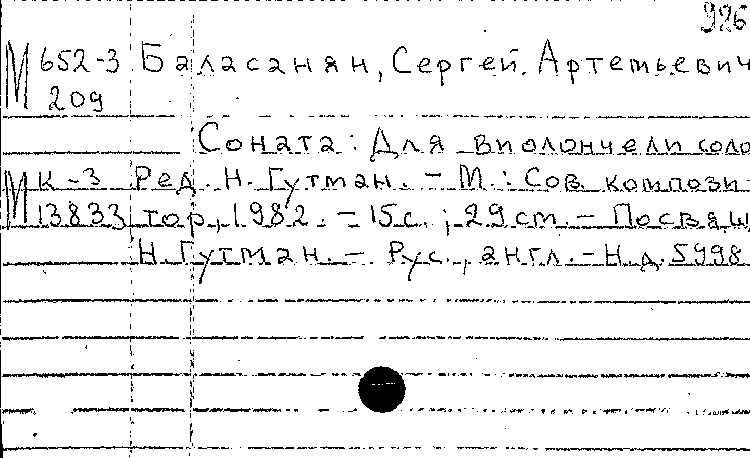 926
М 652-3 Баласанян, Сергей Артемьевич
209
Соната: Для виолончели соло
М К-3 Ред. Н. Гутман. - М.: Сов. компози-
13833 тор, 1982. - 15 с.; 29 см. - Посвящ
Н. Гутман. - Рус., англ. - Н. д. 5998